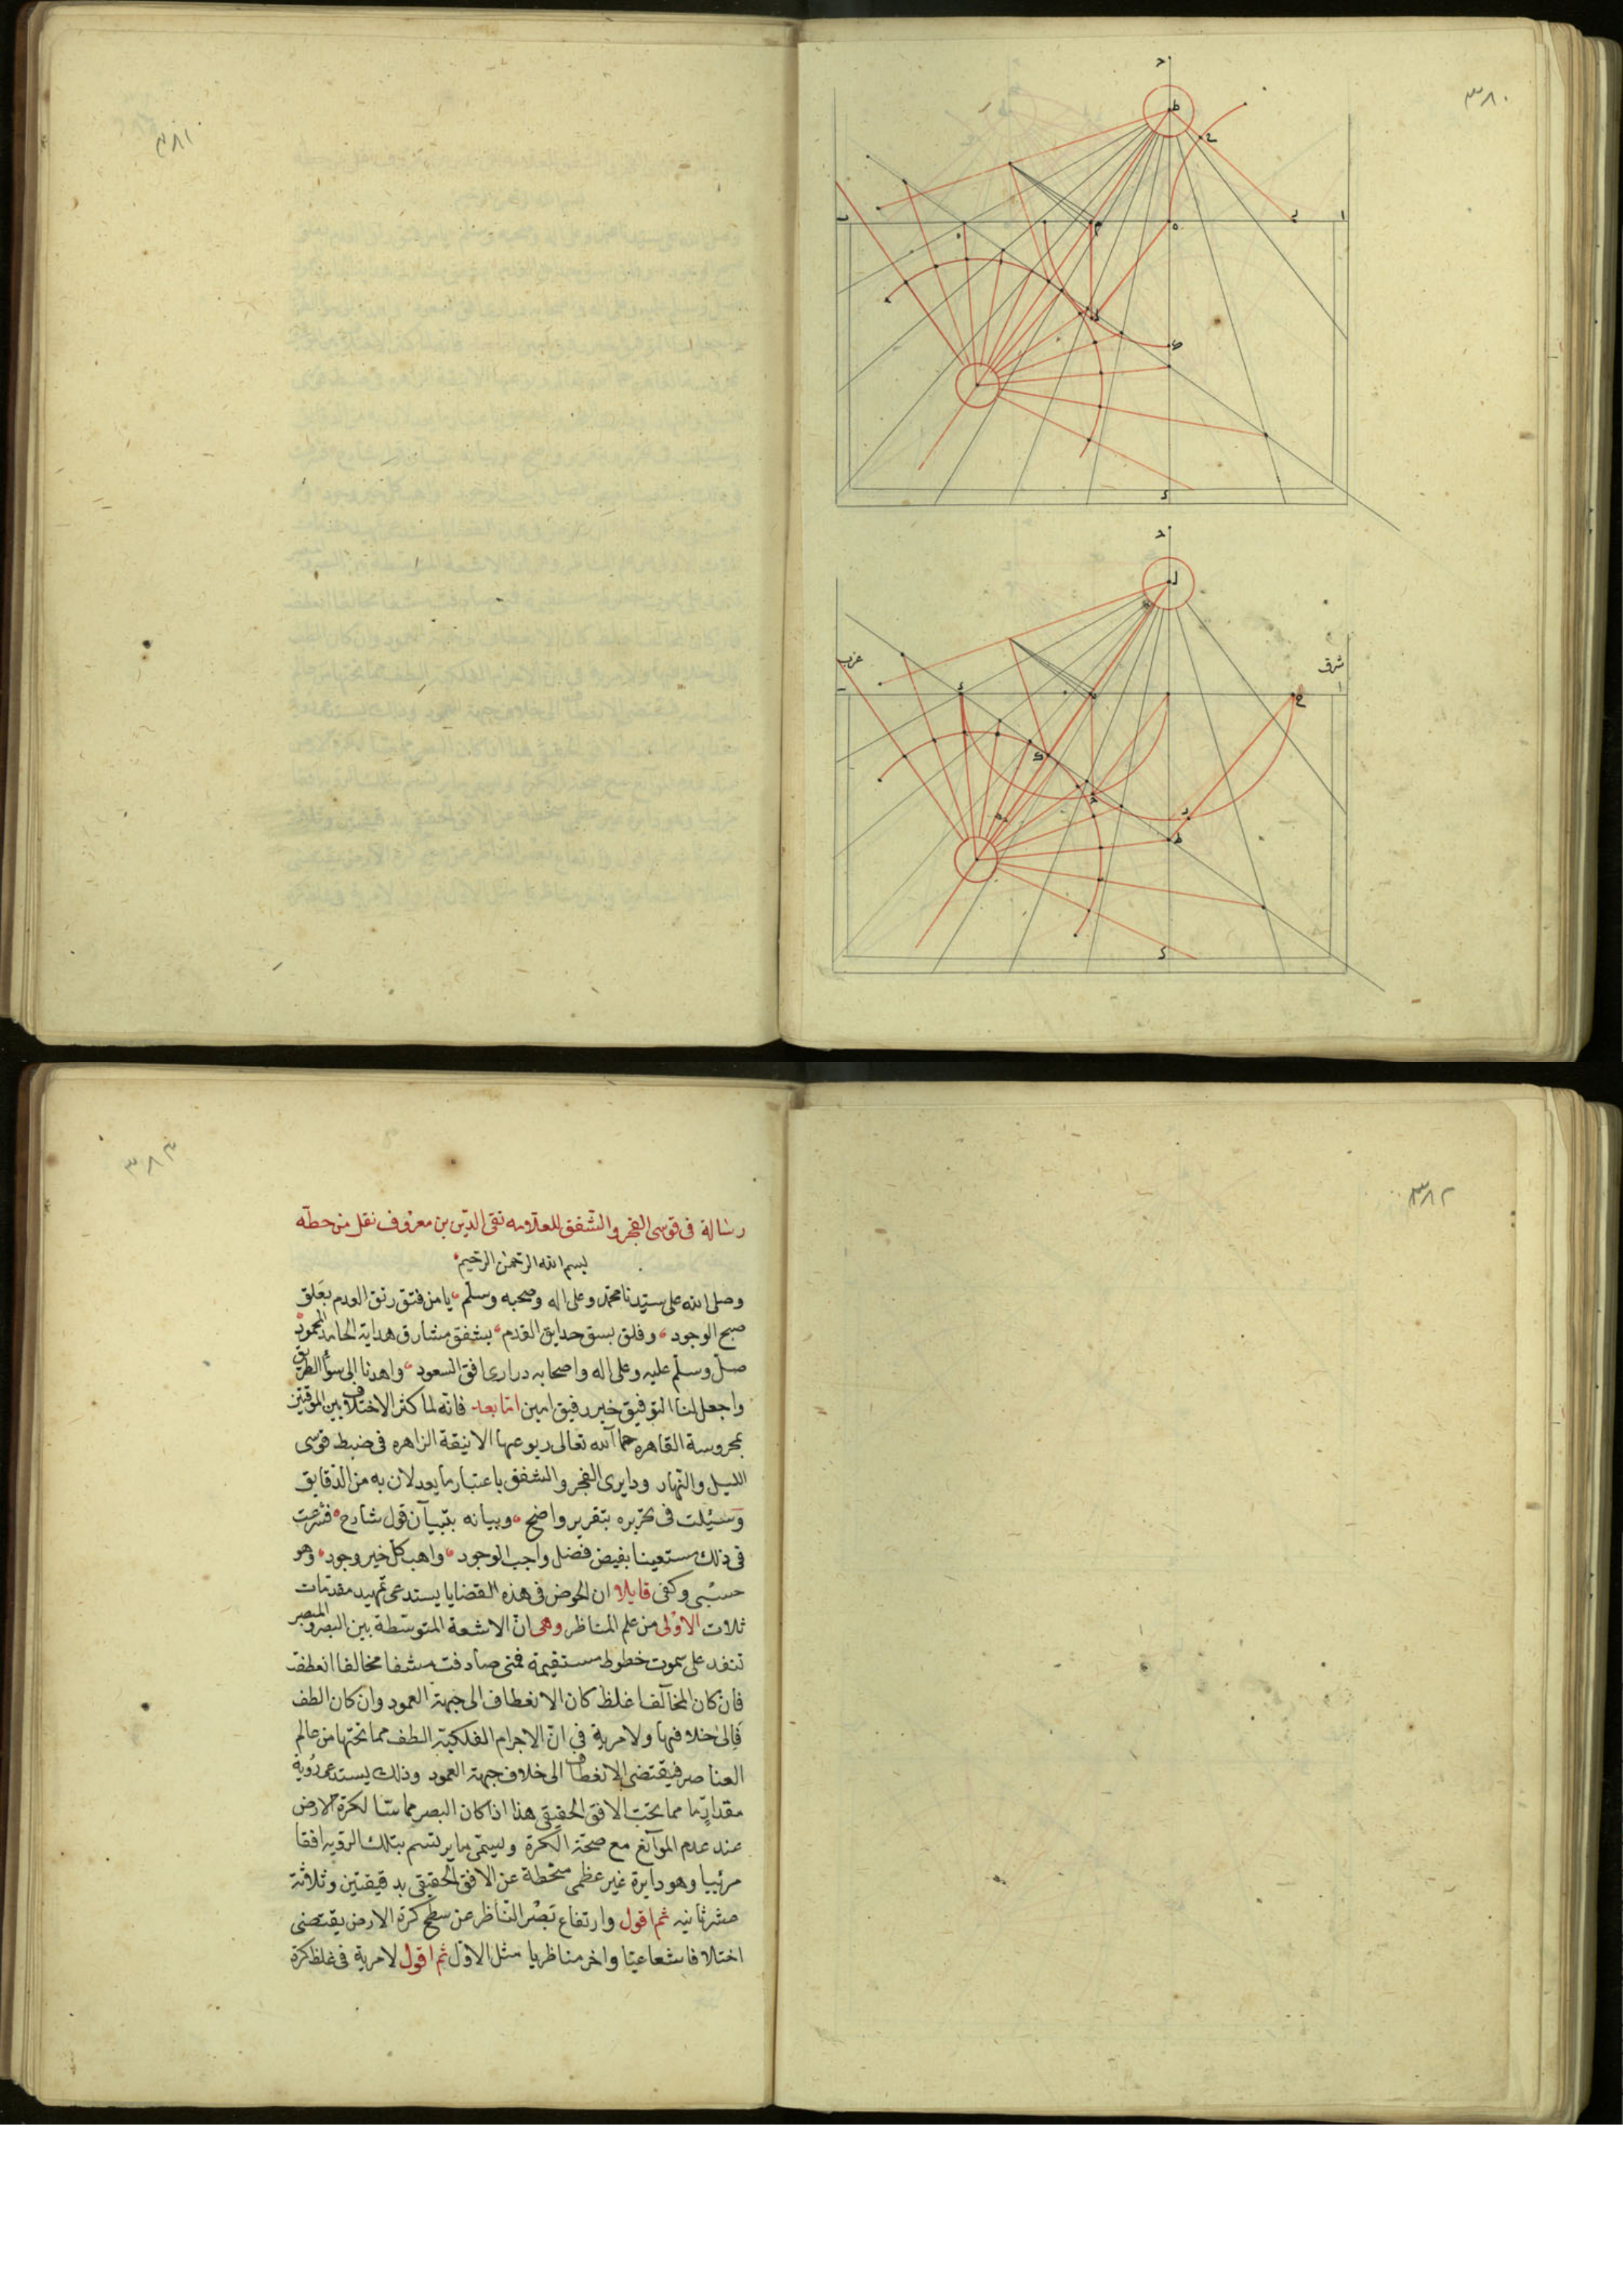 ٣٨٠
ح
ط
ع
ا
ب
ه
م
ى
د
ح
ل
غرب
شرق
ا
د
٣٨١
٣٨٢
٣٨٣
رسالة فى قوسى الفجر والشفق للعلامه تقى الدين بن معروف نقل من خطه
بسم الله الرحمن الرحيم
وصلى الله على سيدنا محمد وعلى اله وصحبه وسلم يا من فتق رتق العدم بفلق
صبح الوجود وفلق بسق حدايق القدم بشفق مشارق هداية الحامد المحمود
صل وسلم عليه وعلى اله واصحابه درارى افق السعود واهدنا الى سوأ الطريق
واجعل لنا التوفيق خير رفيق امين اما بعد فانه لما كثر الاختلاف بين الموقتين
بمحروسة القاهره حما الله تعالى ربوعها الانيقة الزاهره فى ضبط قوسى
الليل والنهار ودايرى الفجر والشفق باعتبار ما يعدلان به من الدقايق
وسئلت فى تحريره بتقرير واضح وبيانه بتبيان قول شارح فشرعت
فى ذلك مستعينا بفيض فضل واجب الوجود واهب كل خير وجود وهو
حسبى وكفى قايلا ان الخوض فى هذه القضايا يستدعى تمهيد مقدمات
ثلاث الاولى من علم المناظر وهى ان الاشعة المتوسطة بين البصر والمبصر
تنفد على سموت خطوط مستقيمة فمتى صادفت مشفا مخالفا انعطفت
فان كان المخالف اغلظ كان الانعطاف الى جهة العمود وان كان الطف
فالى خلافها ولا مرية فى ان الاجرام الفلكية الطف مما تحتها من عالم
العناصر فيقتضى الانعطاف الى خلاف جهة العمود وذلك يستدعى رؤية
مقدار ما مما تحت الافق الحقيقى هذا اذا كان البصر مماسا لكرة الارض
عند عدم الموانع مع صحة الكرة ويسمى ما يرتسم بتلك الرؤية افقا
مرئيا وهو دايرة غير عظمى منحطة عن الافق الحقيقى بدقيقتين وثلاثة
عشر ثانيه ثم اقول وارتفاع بصر الناظر عن سطح كرة الارض يقتضى
اختلافا شعاعيا واخر مناظريا مثل الاول ثم اقول لا مرية فى غلظ كرة